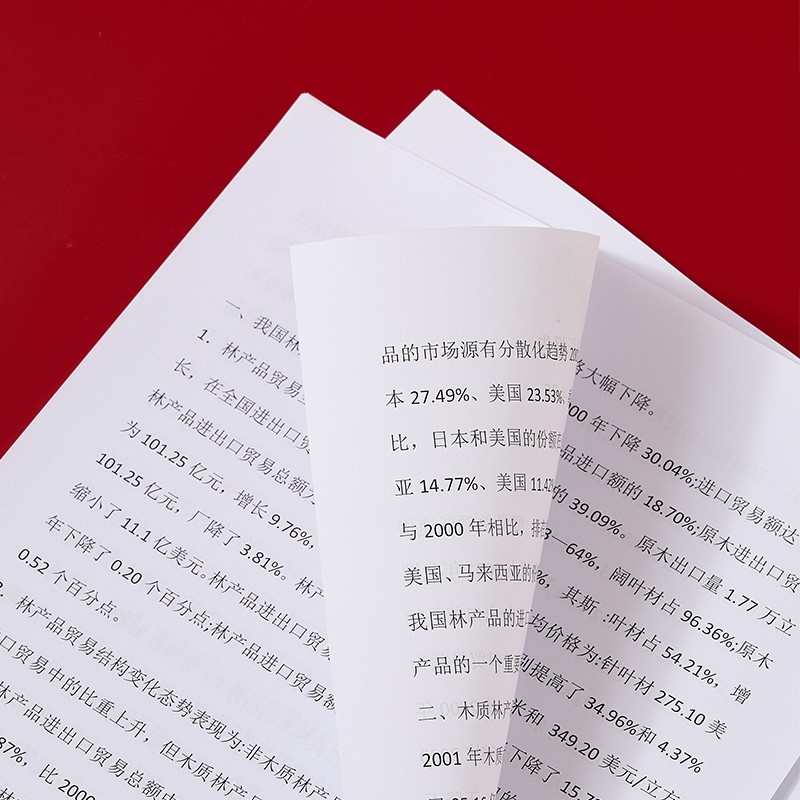 一、我国林
1. 林产品贸易
长，在全国进出口贸
林产品进出口贸易总额为
为 101.25 亿元，增长 9.76%，
101.25 亿元，厂降了 3.81%。林产
缩小了 11.1 亿美元。林产品进出口贸易
年下降了 0.20 个百分点;林产品进口贸易额
0.52 个百分点。
林产品贸易结构变化态势表现为:非木质林产
口贸易中的比重上升，但木质林产品
林产品进出口贸易总额中
87%，比 2000
品的市场源有分散化趋势
本 27.49%、美国 23.53%、
比，日本和美国的份额
亚 14.77%、美国 11.42%
与 2000 年相比，排在
美国、马来西亚的份
我国林产品的进口
产品的一个重要
二、木质林产
2001 年木质
大幅下降。
00 年下降 30.04%;进口贸易额达
品进口额的 18.70%;原木进出口贸
的 39.09%。原木出口量 1.77 万立
3—64%，阔叶材占 96.36%:原木
%，其斯 :叶材占 54.21%，增
均价格为:针叶材 275.10 美
提高了 34.96%和 4.37%
米和 349.20 美元/立方
下降了 15.7